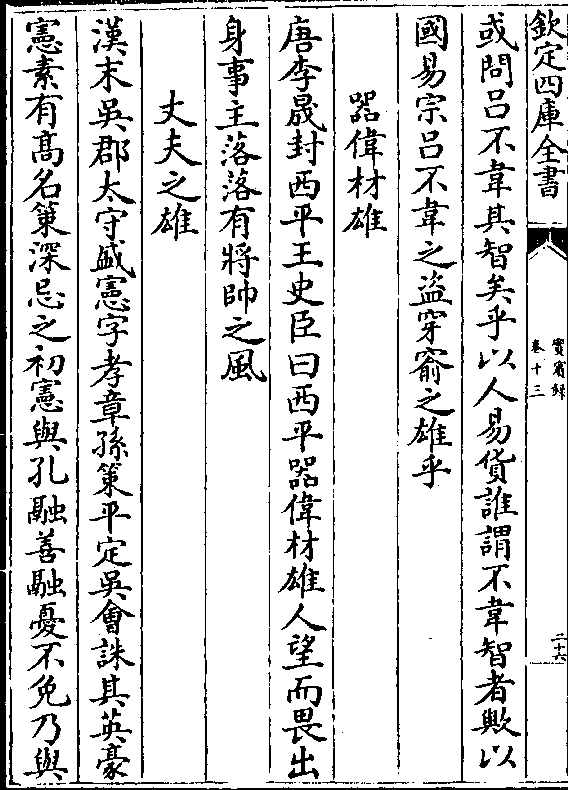 欽定四庫全書
實賓録
卷十三
二十六
或問呂不韋其智矣乎以人易貨誰謂不韋智者歟以
國易宗呂不韋之盜穿窬之雄乎
器偉材雄
唐李晟封西平王史臣曰西平器偉材雄人望而畏出
身事主落落有將帥之風
丈夫之雄
漢末吳郡太守盛憲字孝章孫策平定吳會誅其英豪
憲素有髙名策深忌之初憲與孔融善融憂不免乃與